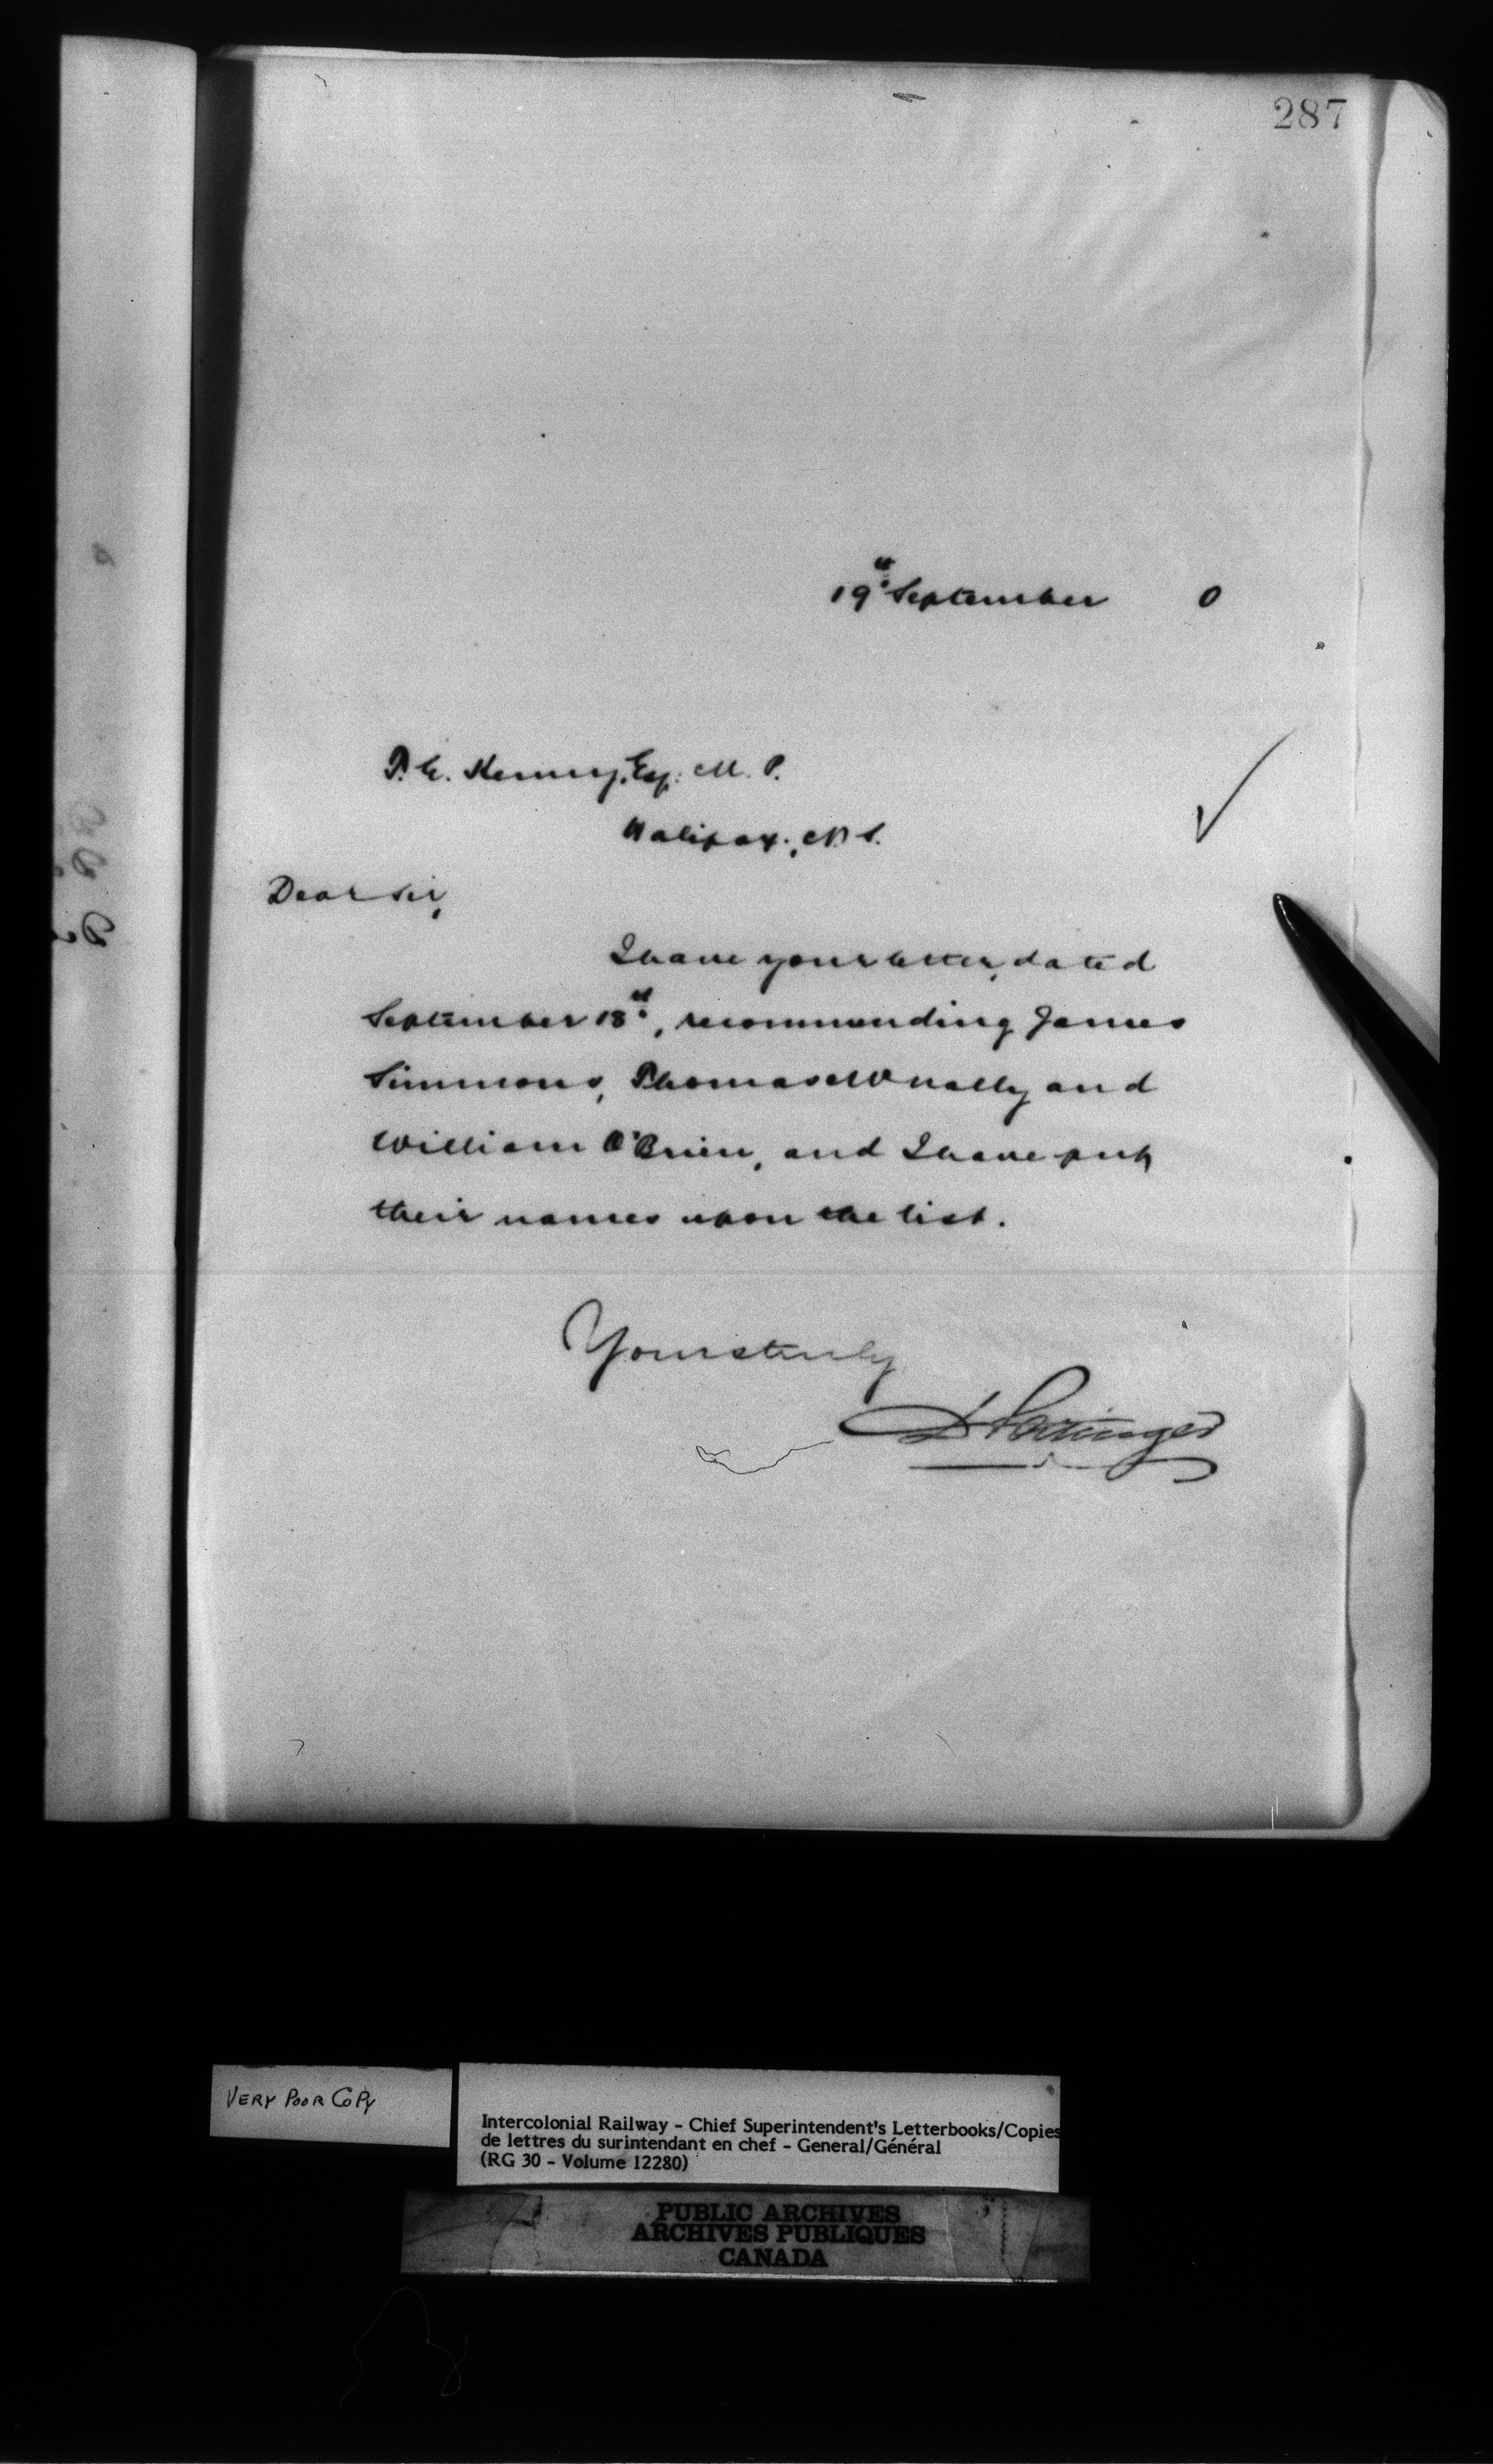 287
19th September 0
T. E. Kenny, Esq. M. P.
Halifax, N. S.
Dear Sir,
I have your letter, dated
September 18th, recommending James
Simmons, Thomas McNally and
William O'Brien, and I have put
their names upon the list.
Yours truly
D Pottinger
VERY POOR COPY
Intercolonial Railway - Chief Superintendent's Letterbooks/Copies
de lettres du surintendant en chef - General/Général
(RG 30 - Volume 12280)
PUBLIC ARCHIVES
ARCHIVES PUBLIQUES
CANADA